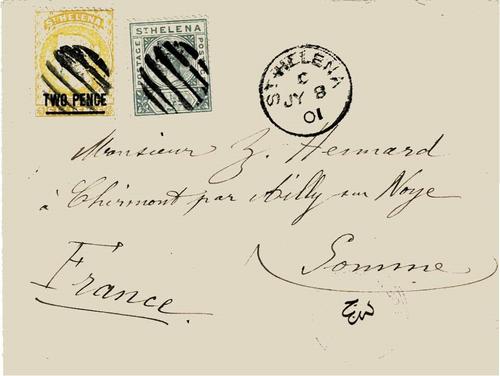 ST HELENA
TWO PENCE
ST HELENA
POSTAGE
ST HELENA
C
JY 8
01
Monsieur Z. Hennard
à Chirmont par Ailly sur Noye
Somme
France